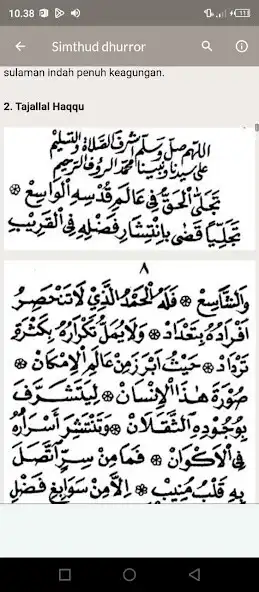 10.38
Simthud dhurror
sulaman indah penuh keagungan.
2. Tajallal Haqqu
اللهم صل وسلم أشرف الصلاة والتسليم
على سيدنا ونبينا محمد الرؤف الرحيم
تَجَلَّى الْحَقُّ فِي عَالَمِ قُدْسِهِ الْوَاسِعْ ۞
تَجَلِّيًا قَضَى بِانْتِشَارِ فَضْلِهِ فِي الْقَرِيْبِ
٨
وَالشَّاسِعْ ۞ فَلَهُ الْحَمْدُ الَّذِيْ لَا تَنْحَصِرُ
أَفْرَادُهُ بِتَعْدَادْ ۞ وَلَا يُمَلُّ تَكْرَارُهُ بِكَثْرَةِ
تَرْدَادْ ۞ حَيْثُ أَبْرَزَ مِنْ عَالَمِ الْإِمْكَانْ ۞
صُوْرَةَ هٰذَا الْإِنْسَانْ ۞ لِيَتَشَرَّفَ
بِوُجُوْدِهِ الثَّقَلَانْ ۞ وَتَنْتَشِرَ أَسْرَارُهُ
فِي الْأَكْوَانْ ۞ فَمَا مِنْ سِرٍّ اتَّصَلَ
بِهِ قَلْبُ مُنِيْبْ ۞ إِلَّا مِنْ سَوَابِغِ فَضْلِ